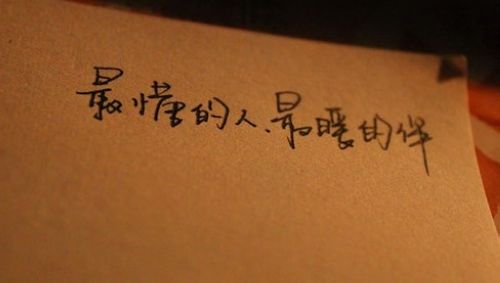 最懂的人、最暖的伴